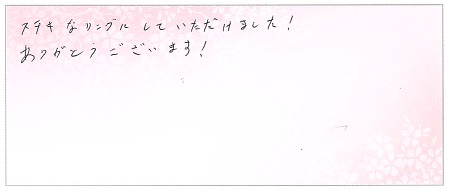 ステキなリングにしていただけました!
ありがとうございます!